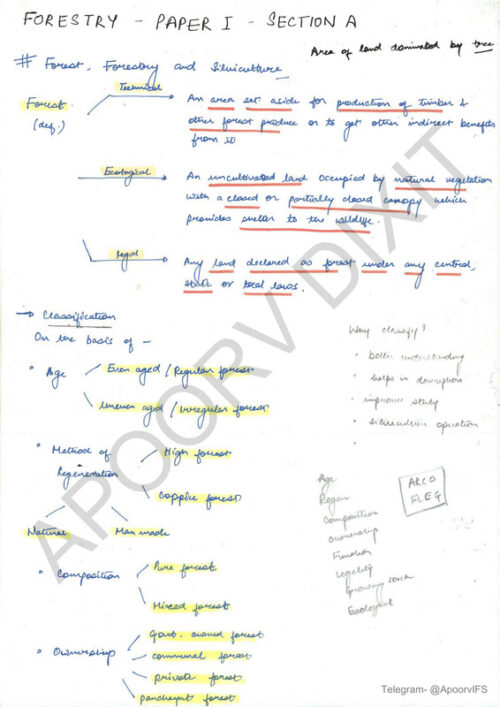 FORESTRY - PAPER I - SECTION A
Area of land dominated by tree
# Forest, Forestry and Silviculture
Forest
(def.)
Technical
An area set aside for production of timber &
other forest produce or to get other indirect benefits
from it
Ecological
An uncultivated land occupied by natural vegetation
with a closed or partially closed canopy which
provides shelter to the wildlife.
legal
Any land declared as forest under any central,
state or local laws.
→ Classification
On the basis of -
• Age
Even aged / Regular forest
Uneven aged / Irregular forest
• Method of
Regeneration
High forest
Coppice forest
Natural
Man made
• Composition
Pure forest
Mixed forest
• Ownership
Govt. owned forest
communal forest
private forest
panchayat forest
Why classify?
• better understanding
• helps in description
• improves study
• silviculture operation
•
Age
Regen
Composition
Ownership
Function
Legality
Growing stock
Ecological
ARCO
FLEG
APOORV DIXIT
Telegram- @ApoorvIFS